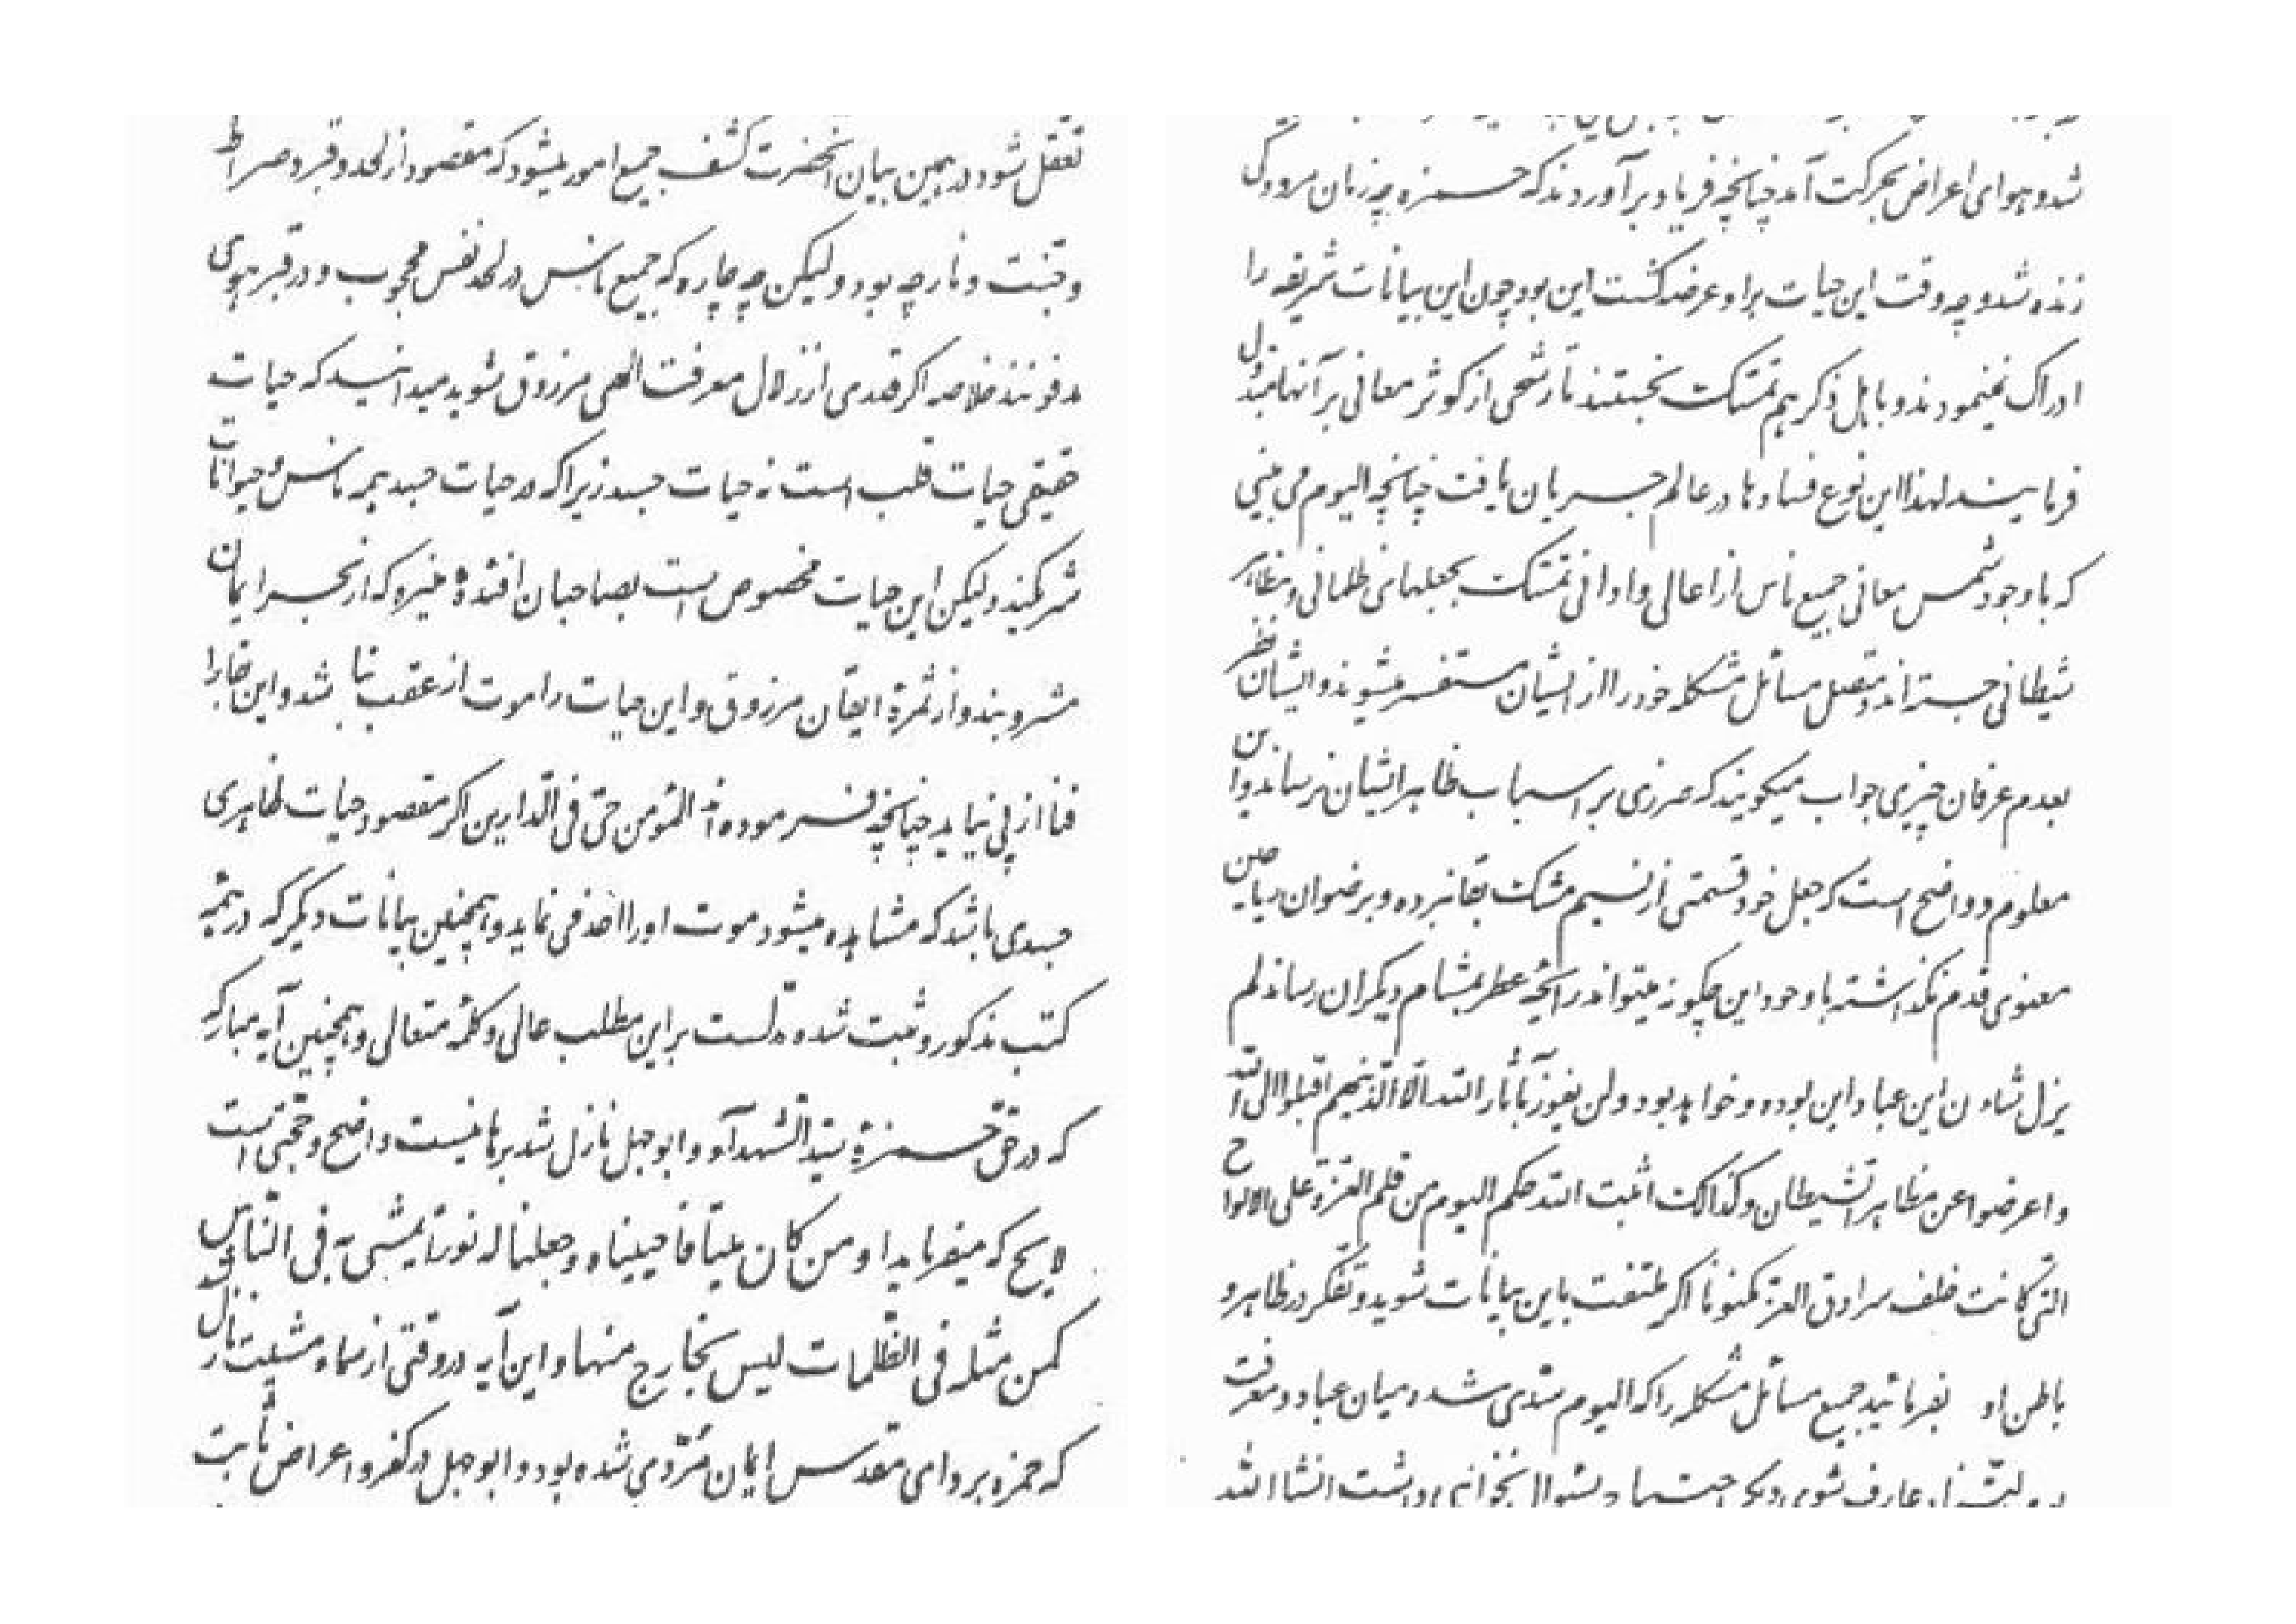 تعقل شود در همین بیان انحضرت کشف جمیع امور میشود که مقصود از لحد و قبر و صراط
و جنت و نار چه بود ولیکن چه چاره که جمیع ناس در لحد نفس محجوب و در قبر هوی
مدفونند خلاصه اگر قدری از زلال معرفت الهی مرزوق شوید میدانید که حیات
حقیقی حیات قلب است نه حیات جسد زیرا که در حیات جسد همه ناس و حیوانات
شریکند ولیکن این حیات مخصوص است بصاحبان افئدهٔ منیره که از بحر ایمان
مشروبند و از ثمرهٔ ایقان مرزوق و این حیات را موت از عقب نباشد و این بقا را
فنا از پی نیاید چنانچه فرموده‌اند المؤمن حی فی الدارین اگر مقصود حیات ظاهری
جسدی باشد که مشاهده میشود موت او را اخذ می نماید و همچنین بیانات دیگر که در همه
کتب مذکور و ثبت شده مدلست بر این مطلب عالی و کلمهٔ متعالی و همچنین آیه مبارکه
که در حق حمزهٔ سید الشهدآء و ابوجهل نازل شد برهانیست واضح و حجتیست
لایح که میفرماید او من کان میتا فاحییناه و جعلنا له نورا یمشی به فی الناس
کمن مثله فی الظلمات لیس بخارج منها و این آیه در وقتی از سماء مشیت نازل شد
که حمزه بردای مقدس ایمان مردّی شده بود و ابوجهل در کفر و اعراض ثابت
شد و هوای اعراض بحرکت آمد چنانچه فریاد برآوردند که حمزه چه زمان مرد و کی
زنده شد و چه وقت این حیات بر او عرضه گشت این بود چون این بیانات شریفه را
ادراک نمینمودند و باهل ذکر هم تمسک نجستند تا رشحی از کوثر معانی بر آنها مبذول
فرمایند لهذا این نوع فسادها در عالم جریان یافت چنانچه الیوم می بینی
که با وجود شمس معانی جمیع ناس از اعالی و ادانی تمسک بجعلهای ظلمانی و مظاهر
شیطانی جسته‌اند و متصل مسائل مشکله خود را از ایشان مستفسر میشوند و ایشان نظر
بعدم عرفان چیزی جواب میگویند که ضرری بر اسباب ظاهر ایشان نرساند و این
معلوم و واضح است که جعل خود قسمتی از نسیم مشک بقا نبرده و برضوان ریاحین
معنوی قدم نگذاشته با وجود این چگونه میتواند رائحهٔ عطر بمشام دیگران رساند لم
یزل شان این عباد این بوده و خواهد بود ولن یفوز بآثار الله الا الذینهم اقبلوا الی الله
و اعرضوا عن مظاهر الشیطان و کذالک اثبت الله حکم الیوم من قلم العزة علی الالواح
التی کانت خلف سرادق العز مکنونا اگر ملتفت باین بیانات شوید و تفکر در ظاهر و
باطن او بفرمائید جمیع مسائل مشکله را که الیوم سدی شده میان عباد و معرفت
عارف شوی دیگر احتیاج بسئوال نخواهی داشت انشاالله